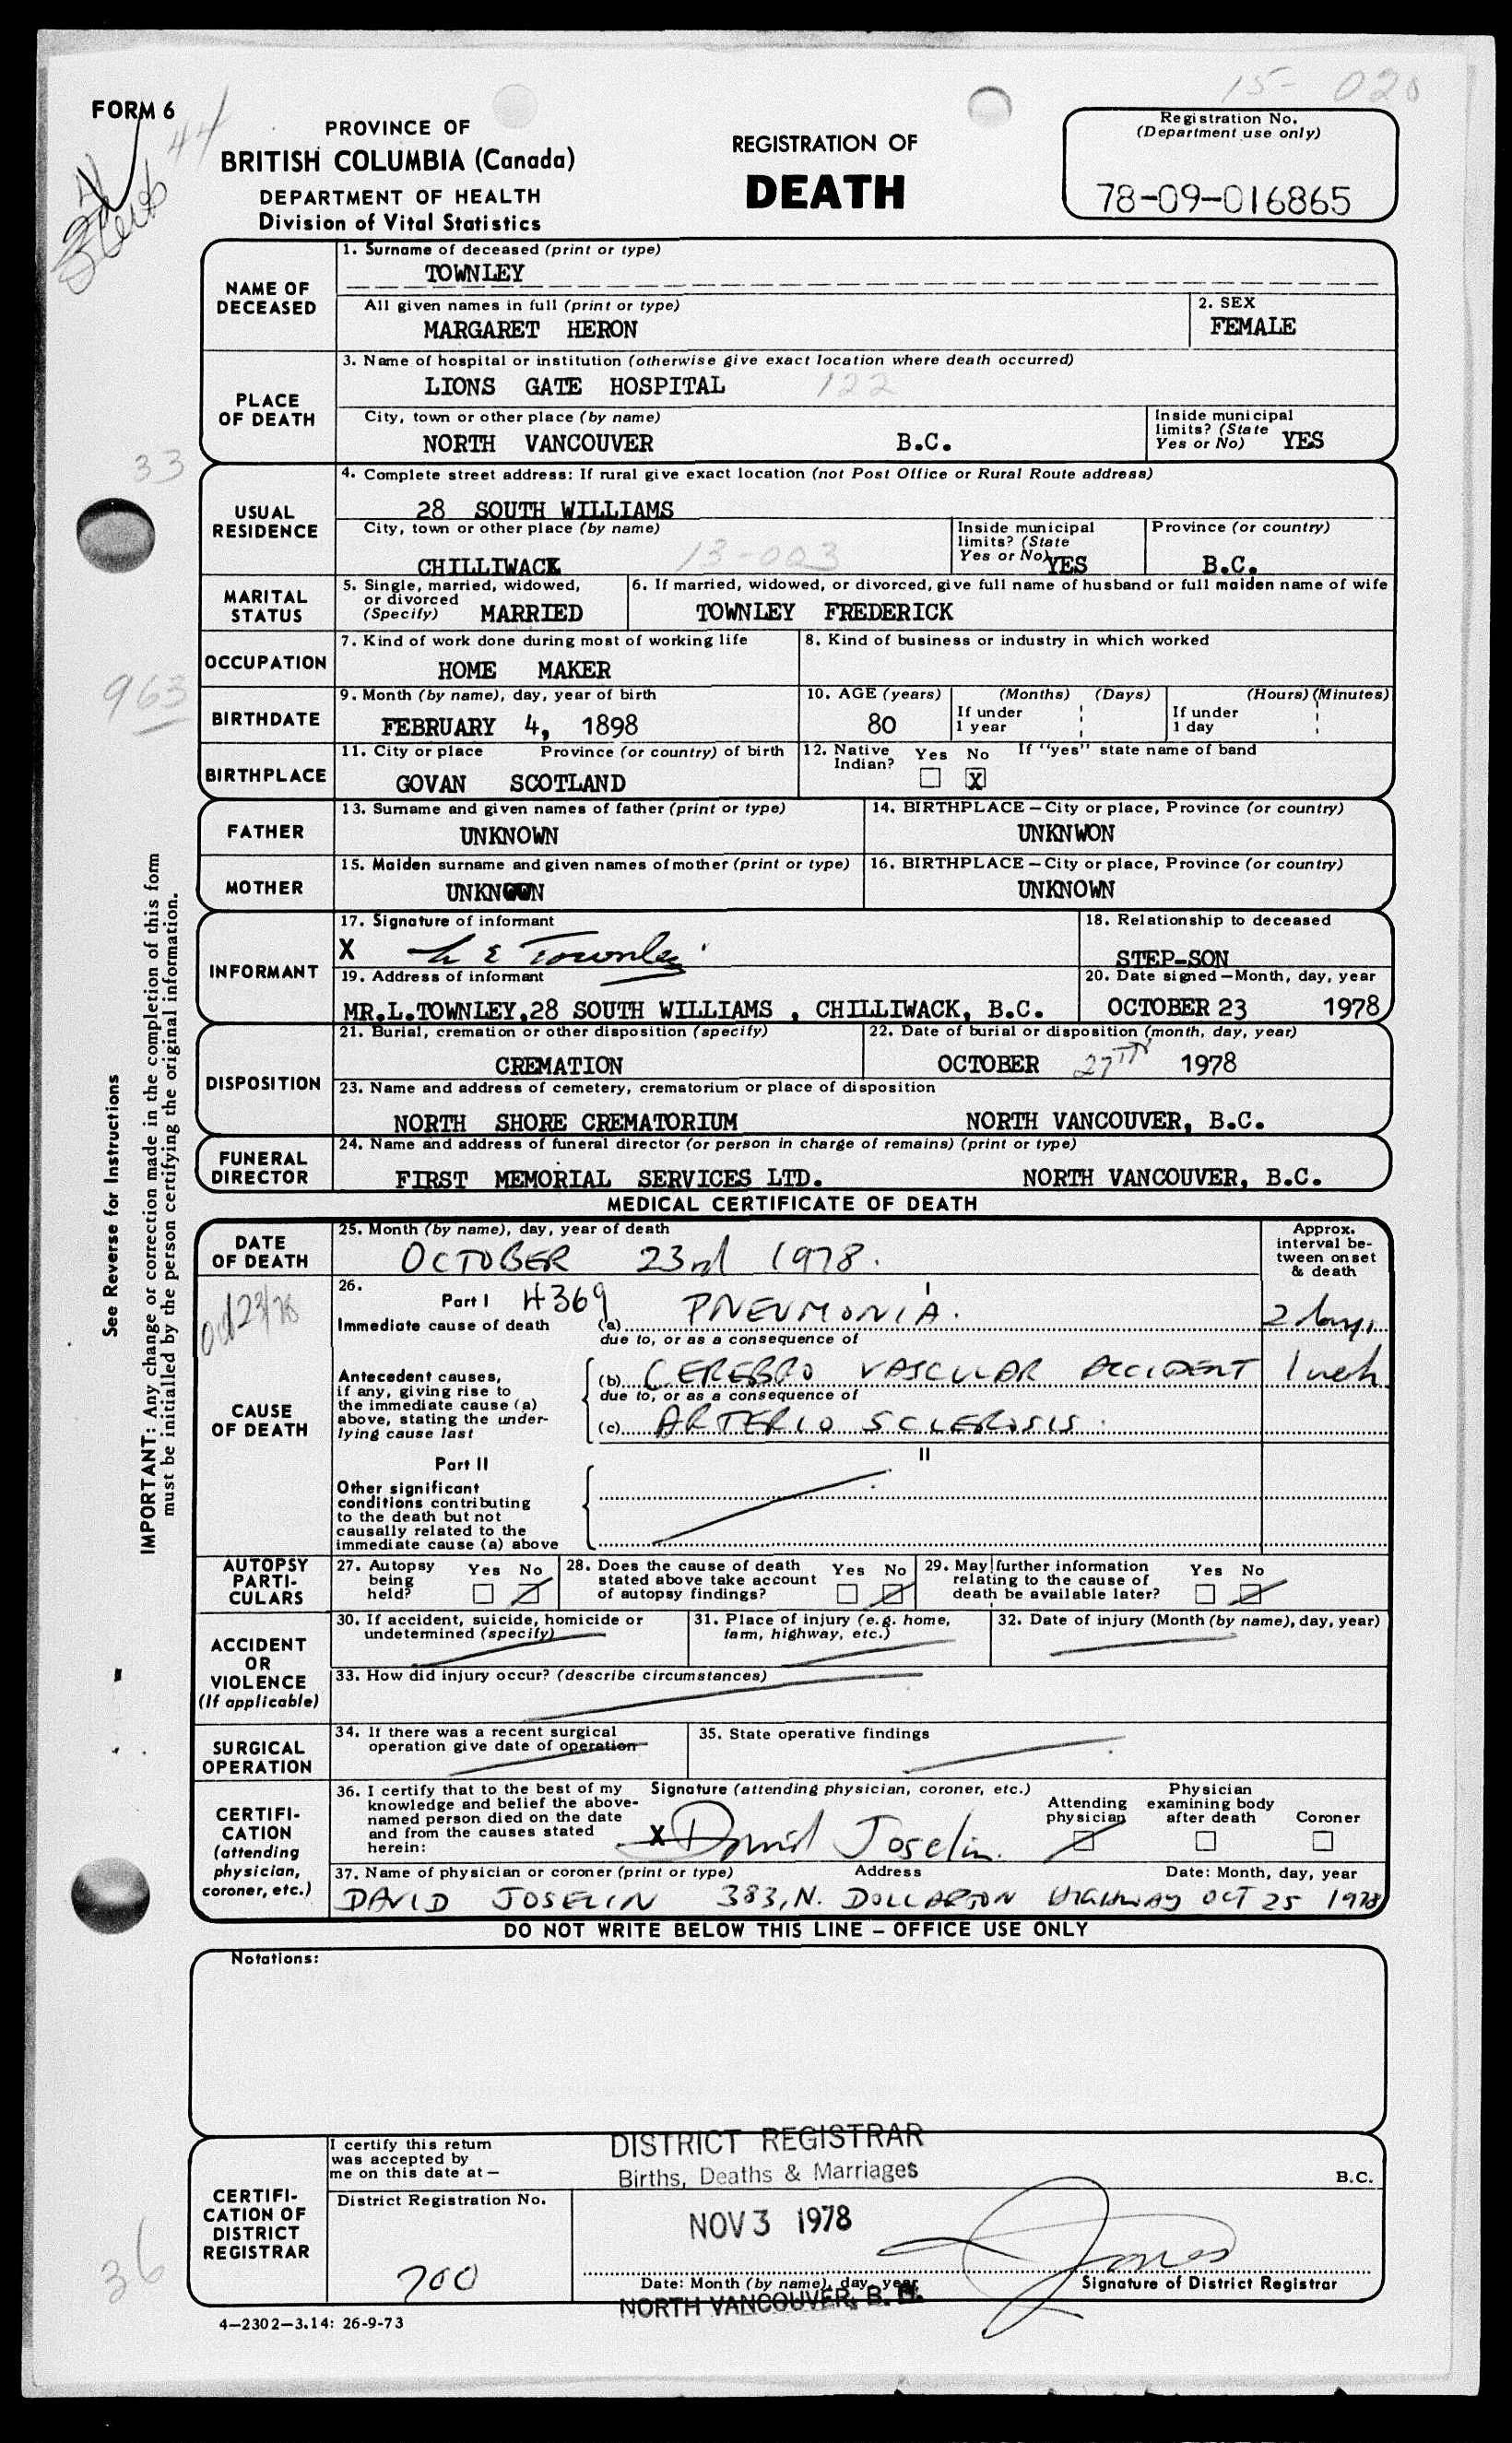 15- 020
FORM 6
44
PROVINCE OF
BRITISH COLUMBIA (Canada)
DEPARTMENT OF HEALTH
Division of Vital Statistics
REGISTRATION OF
DEATH
Registration No.
(Department use only)
78-09-016865
NAME OF
DECEASED
1. Surname of deceased (print or type)
TOWNLEY
All given names in full (print or type)
MARGARET HERON
2. SEX
FEMALE
PLACE
OF DEATH
3. Name of hospital or institution (otherwise give exact location where death occurred)
LIONS GATE HOSPITAL 122
City, town or other place (by name)
NORTH VANCOUVER B.C.
Inside municipal
limits? (State
Yes or No) YES
33
USUAL
RESIDENCE
4. Complete street address: If rural give exact location (not Post Office or Rural Route address)
28 SOUTH WILLIAMS
City, town or other place (by name)
CHILLIWACK 13-003
Inside municipal
limits? (State
Yes or No) YES
Province (or country)
B.C.
MARITAL
STATUS
5. Single, married, widowed,
or divorced
(Specify) MARRIED
6. If married, widowed, or divorced, give full name of husband or full maiden name of wife
TOWNLEY FREDERICK
OCCUPATION
7. Kind of work done during most of working life
HOME MAKER
8. Kind of business or industry in which worked
963
BIRTHDATE
9. Month (by name), day, year of birth
FEBRUARY 4, 1898
10. AGE (years) (Months) (Days) (Hours) (Minutes)
80
If under
1 year
If under
1 day
BIRTHPLACE
11. City or place Province (or country) of birth
GOVAN SCOTLAND
12. Native
Indian?
Yes No If "yes" state name of band
X
FATHER
13. Surname and given names of father (print or type)
UNKNOWN
14. BIRTHPLACE – City or place, Province (or country)
UNKNWON
MOTHER
15. Maiden surname and given names of mother (print or type)
UNKNOWN
16. BIRTHPLACE – City or place, Province (or country)
UNKNOWN
INFORMANT
17. Signature of informant
X L E Townley
18. Relationship to deceased
STEP-SON
19. Address of informant
MR.L.TOWNLEY,28 SOUTH WILLIAMS , CHILLIWACK, B.C.
20. Date signed – Month, day, year
OCTOBER 23 1978
DISPOSITION
21. Burial, cremation or other disposition (specify)
CREMATION
22. Date of burial or disposition (month, day, year)
OCTOBER 27TH 1978
23. Name and address of cemetery, crematorium or place of disposition
NORTH SHORE CREMATORIUM NORTH VANCOUVER, B.C.
FUNERAL
DIRECTOR
24. Name and address of funeral director (or person in charge of remains) (print or type)
FIRST MEMORIAL SERVICES LTD. NORTH VANCOUVER, B.C.
See Reverse for Instructions
IMPORTANT: Any change or correction made in the completion of this form
must be initialled by the person certifying the original information.
MEDICAL CERTIFICATE OF DEATH
DATE
OF DEATH
25. Month (by name), day, year of death
OCTOBER 23rd 1978.
Approx.
interval be-
tween onset
& death
Oct 23/78
CAUSE
OF DEATH
26.
Part I H369
I
Immediate cause of death
(a) PNEUMONIA. 2 days.
due to, or as a consequence of
Antecedent causes,
if any, giving rise to
the immediate cause (a)
above, stating the under-
lying cause last
(b) CEREBRO VASCULAR ACCIDENT 1 week
due to, or as a consequence of
(c) ARTERIO SCLEROSIS.
Part II
II
Other significant
conditions contributing
to the death but not
causally related to the
immediate cause (a) above
AUTOPSY
PARTI-
CULARS
27. Autopsy
being
held?
Yes No
28. Does the cause of death
stated above take account
of autopsy findings?
Yes No
29. May further information
relating to the cause of
death be available later?
Yes No
ACCIDENT
OR
VIOLENCE
(If applicable)
30. If accident, suicide, homicide or
undetermined (specify)
31. Place of injury (e.g. home,
farm, highway, etc.)
32. Date of injury (Month (by name), day, year)
33. How did injury occur? (describe circumstances)
SURGICAL
OPERATION
34. If there was a recent surgical
operation give date of operation
35. State operative findings
CERTIFI-
CATION
(attending
physician,
coroner, etc.)
36. I certify that to the best of my
knowledge and belief the above-
named person died on the date
and from the causes stated
herein:
Signature (attending physician, coroner, etc.)
X David Joselin.
Attending
physician
Physician
examining body
after death
Coroner
37. Name of physician or coroner (print or type) Address Date: Month, day, year
DAVID JOSELIN 383, N. DOLLARTON HIGHWAY OCT 25 1978
DO NOT WRITE BELOW THIS LINE – OFFICE USE ONLY
Notations:
CERTIFI-
CATION OF
DISTRICT
REGISTRAR
I certify this return
was accepted by
me on this date at –
DISTRICT REGISTRAR
Births, Deaths & Marriages
B.C.
District Registration No.
700
NOV 3 1978
Jones
Date: Month (by name), day, year
Signature of District Registrar
NORTH VANCOUVER, B. C.
36
4-2302-3.14: 26-9-73